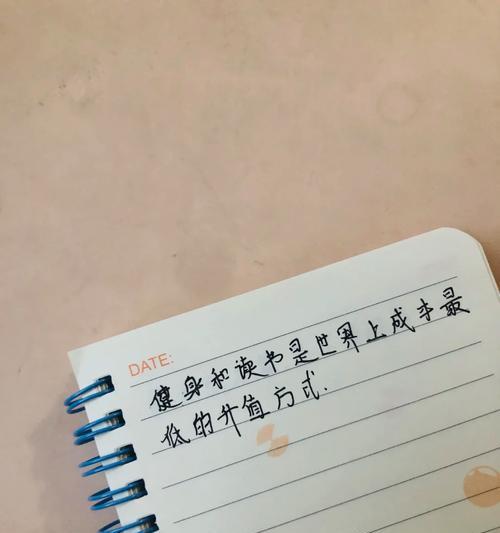 DATE:
健身和读书是世界上成本最
低的升值方式.